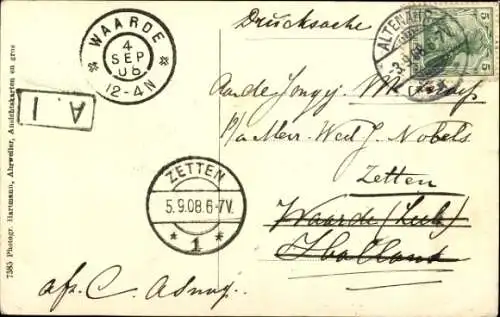 Drucksache
WAARDE
4
SEP
08
12-4N
ALTENAHR
3.9.08.6-7
5
5
A.I
Aan de
p/a Mevr. Wed. J. Nobels
Zetten
Waarde (Zeel.)
Holland
ZETTEN
5.9.08.6-7V.
* 1 *
afz. C.
7385 Photogr. Hartmann, Ahrweiler, Ansichtskarten en gros